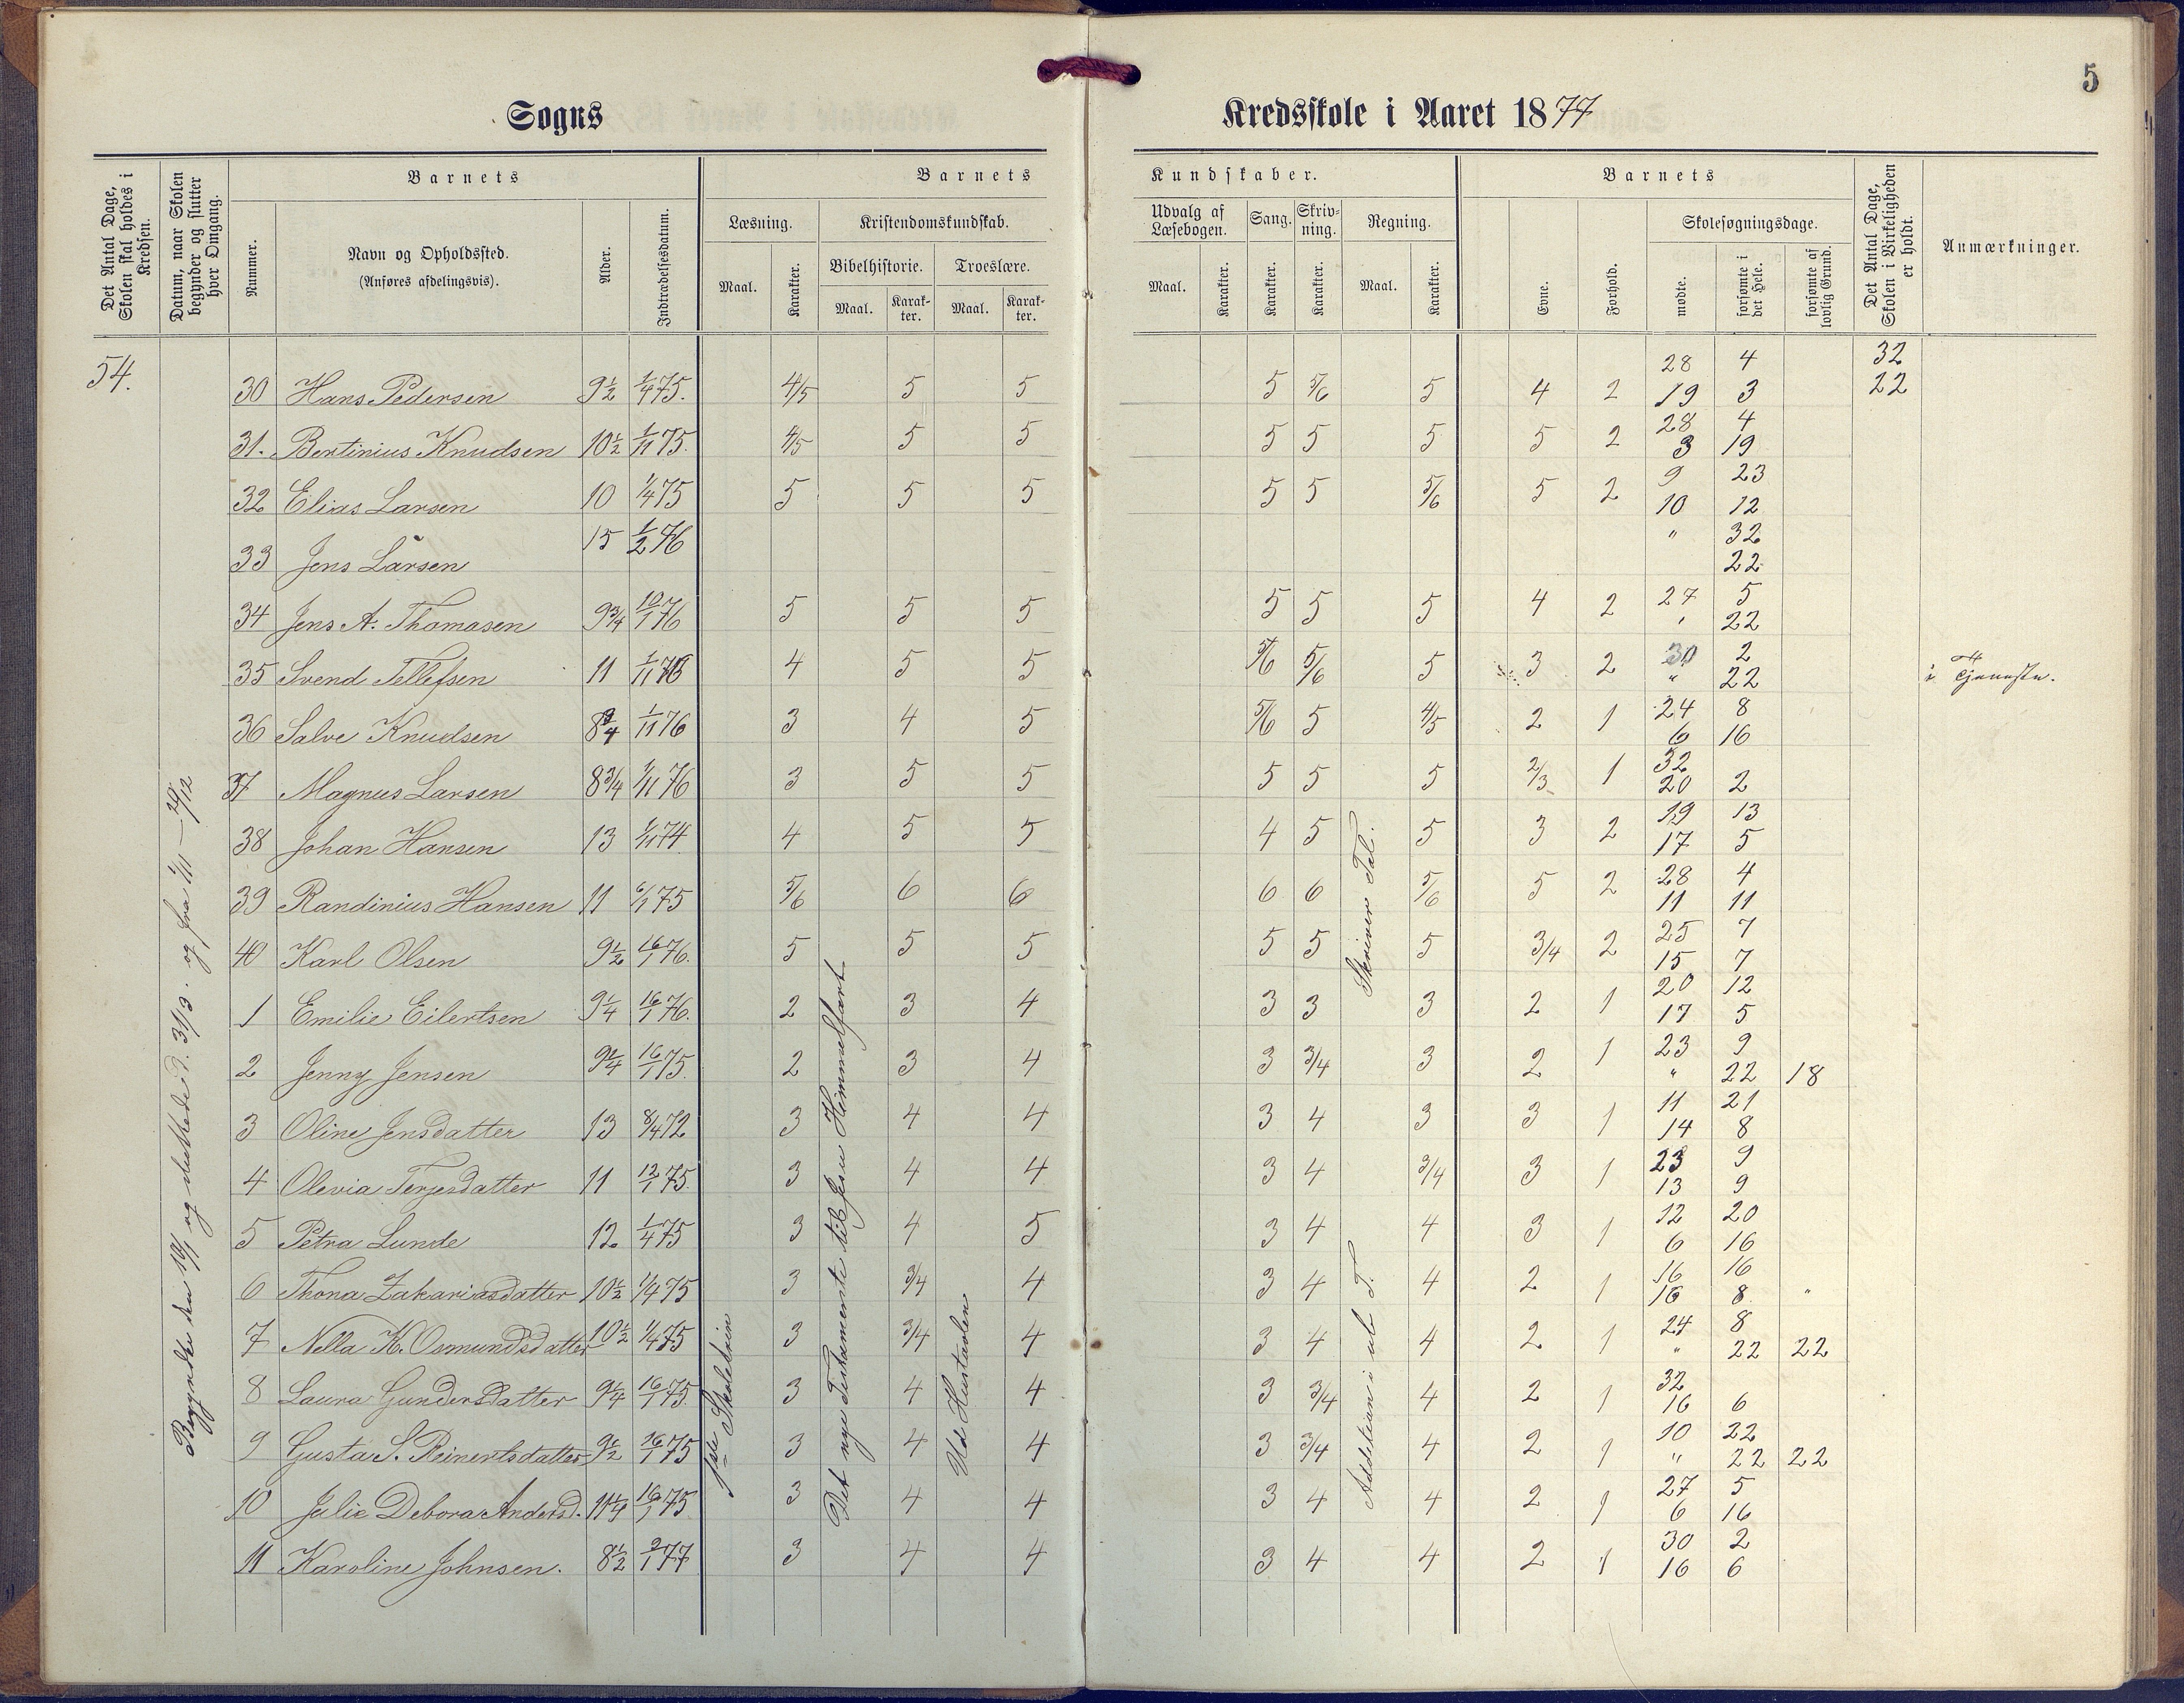 5
Sogns Kredsskole i Aaret 1877
Det Antal Dage, Skolen skal holdes i Kredsen.
Datum, naar Skolen begynder og slutter hver Omgang.
Barnets
Nummer.
Navn og Opholdssted.
(Anføres afdelingsvis).
Alder.
Indtrædelsesdatum.
Barnets Kundskaber.
Læsning.
Maal. Karakter.
Kristendomskundskab.
Bibelhistorie.
Maal. Karakter.
Troeslære.
Maal. Karakter.
Udvalg af Læsebogen.
Maal. Karakter.
Sang.
Karakter.
Skrivning.
Karakter.
Regning.
Maal. Karakter.
Barnets
Evne.
Forhold.
Skolesøgningsdage.
mødte.
forsømte i det Hele.
forsømte af lovlig Grund.
Det Antal Dage, Skolen i Virkeligheden er holdt.
Anmærkninger.
54.
28 4 32
30 Hans Pedersen 9½ 1/4 75. 4/5 5 5 5 5/6 5 4 2 19 3 22
28 4
31. Bertinius Knudsen 10½ 1/11 75. 4/5 5 5 5 5 5 5 2 3 19
9 23
32 Elias Larsen 10 1/4 75 5 5 5 5 5 5/6 5 2 10 12
" 32
33 Jens Larsen 15 1/2 76 22
27 5
34 Jens A. Thomasen 9¾ 10/1 76 5 5 5 5 5 5 4 2 " 22
30 2
35 Svend Tellefsen 11 1/11 76 4 5 5 5/6 5/6 5 3 2 " 22 i Tjeneste.
24 8
36 Salve Knudsen 8¾ 1/11 76 3 4 5 5/6 5 4/5 2 1 6 16
32
37 Magnus Larsen 8¾ 1/11 76 3 5 5 5 5 5 2/3 1 20 2
19 13
38 Johan Hansen 13 1/11 74 4 5 5 4 5 5 3 2 17 5
28 4
39 Randinius Hansen 11 6/1 75 5/6 6 6 6 6 5/6 5 2 11 11
25 7
40 Karl Olsen 9½ 16/1 76. 5 5 5 5 5 5 3/4 2 15 7
20 12
1 Emilie Eilertsen 9¼ 16/1 76. 2 3 4 3 3 3 2 1 17 5
23 9
2 Jenny Jensen 9¼ 16/1 75. 2 3 4 3 3/4 3 2 1 " 22 18
11 21
3 Oline Jensdatter 13 8/4 72 3 4 4 3 4 3 3 1 14 8
23 9
4 Olevia Terjesdatter 11 12/1 75. 3 4 4 3 4 3/4 3 1 13 9
12 20
5 Petra Lunde 12 1/4 75 3 4 5 3 4 4 3 1 6 16
16 16
6 Thona Zakariasdatter 10½ 1/4 75 3 3/4 4 3 4 4 2 1 16 8 "
24 8
7 Nella K. Osmundsdatter 10½ 1/4 75 3 3/4 4 3 4 4 2 1 " 22 22
32
8 Laura Gundersdatter 9¼ 16/1 75. 3 4 4 3 3/4 4 2 1 16 6
10 22
9 Gusta S. Reinertsdatter 9½ 16/1 75 3 4 4 3 3/4 4 2 1 " 22 22
27 5
10 Julie Debora Andersd. 11¼ 16/1 75 3 4 4 3 4 4 2 1 6 16
30 2
11 Karoline Johnsen. 8½ 2/1 77 3 4 4 3 4 4 2 1 16 6
Begyndte den 10/1 og sluttede d. 31/3. og fra 1/11 – 29/12
1ste Skoletrin
Det nye Testamente til Jesu Himmelfart
Ud Hustavlen
Skriver Tal.
Addition i ub T.